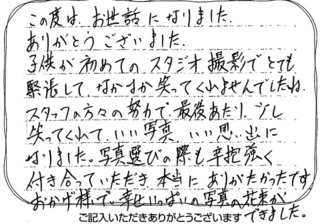 この度は、お世話になりました。
ありがとうございました。
子供が初めてのスタジオ撮影でとても
緊張して、なかなか笑ってくれませんでしたね。
スタッフの方々の努力で、最後あたり、少し
笑ってくれて、いい写真、いい思い出に
なりました。写真選びの際も辛抱強く
付き合っていただき、本当にありがたかったです
おかげ様で、幸せいっぱいの写真の花束が
できました。
ご記入いただきありがとうございます